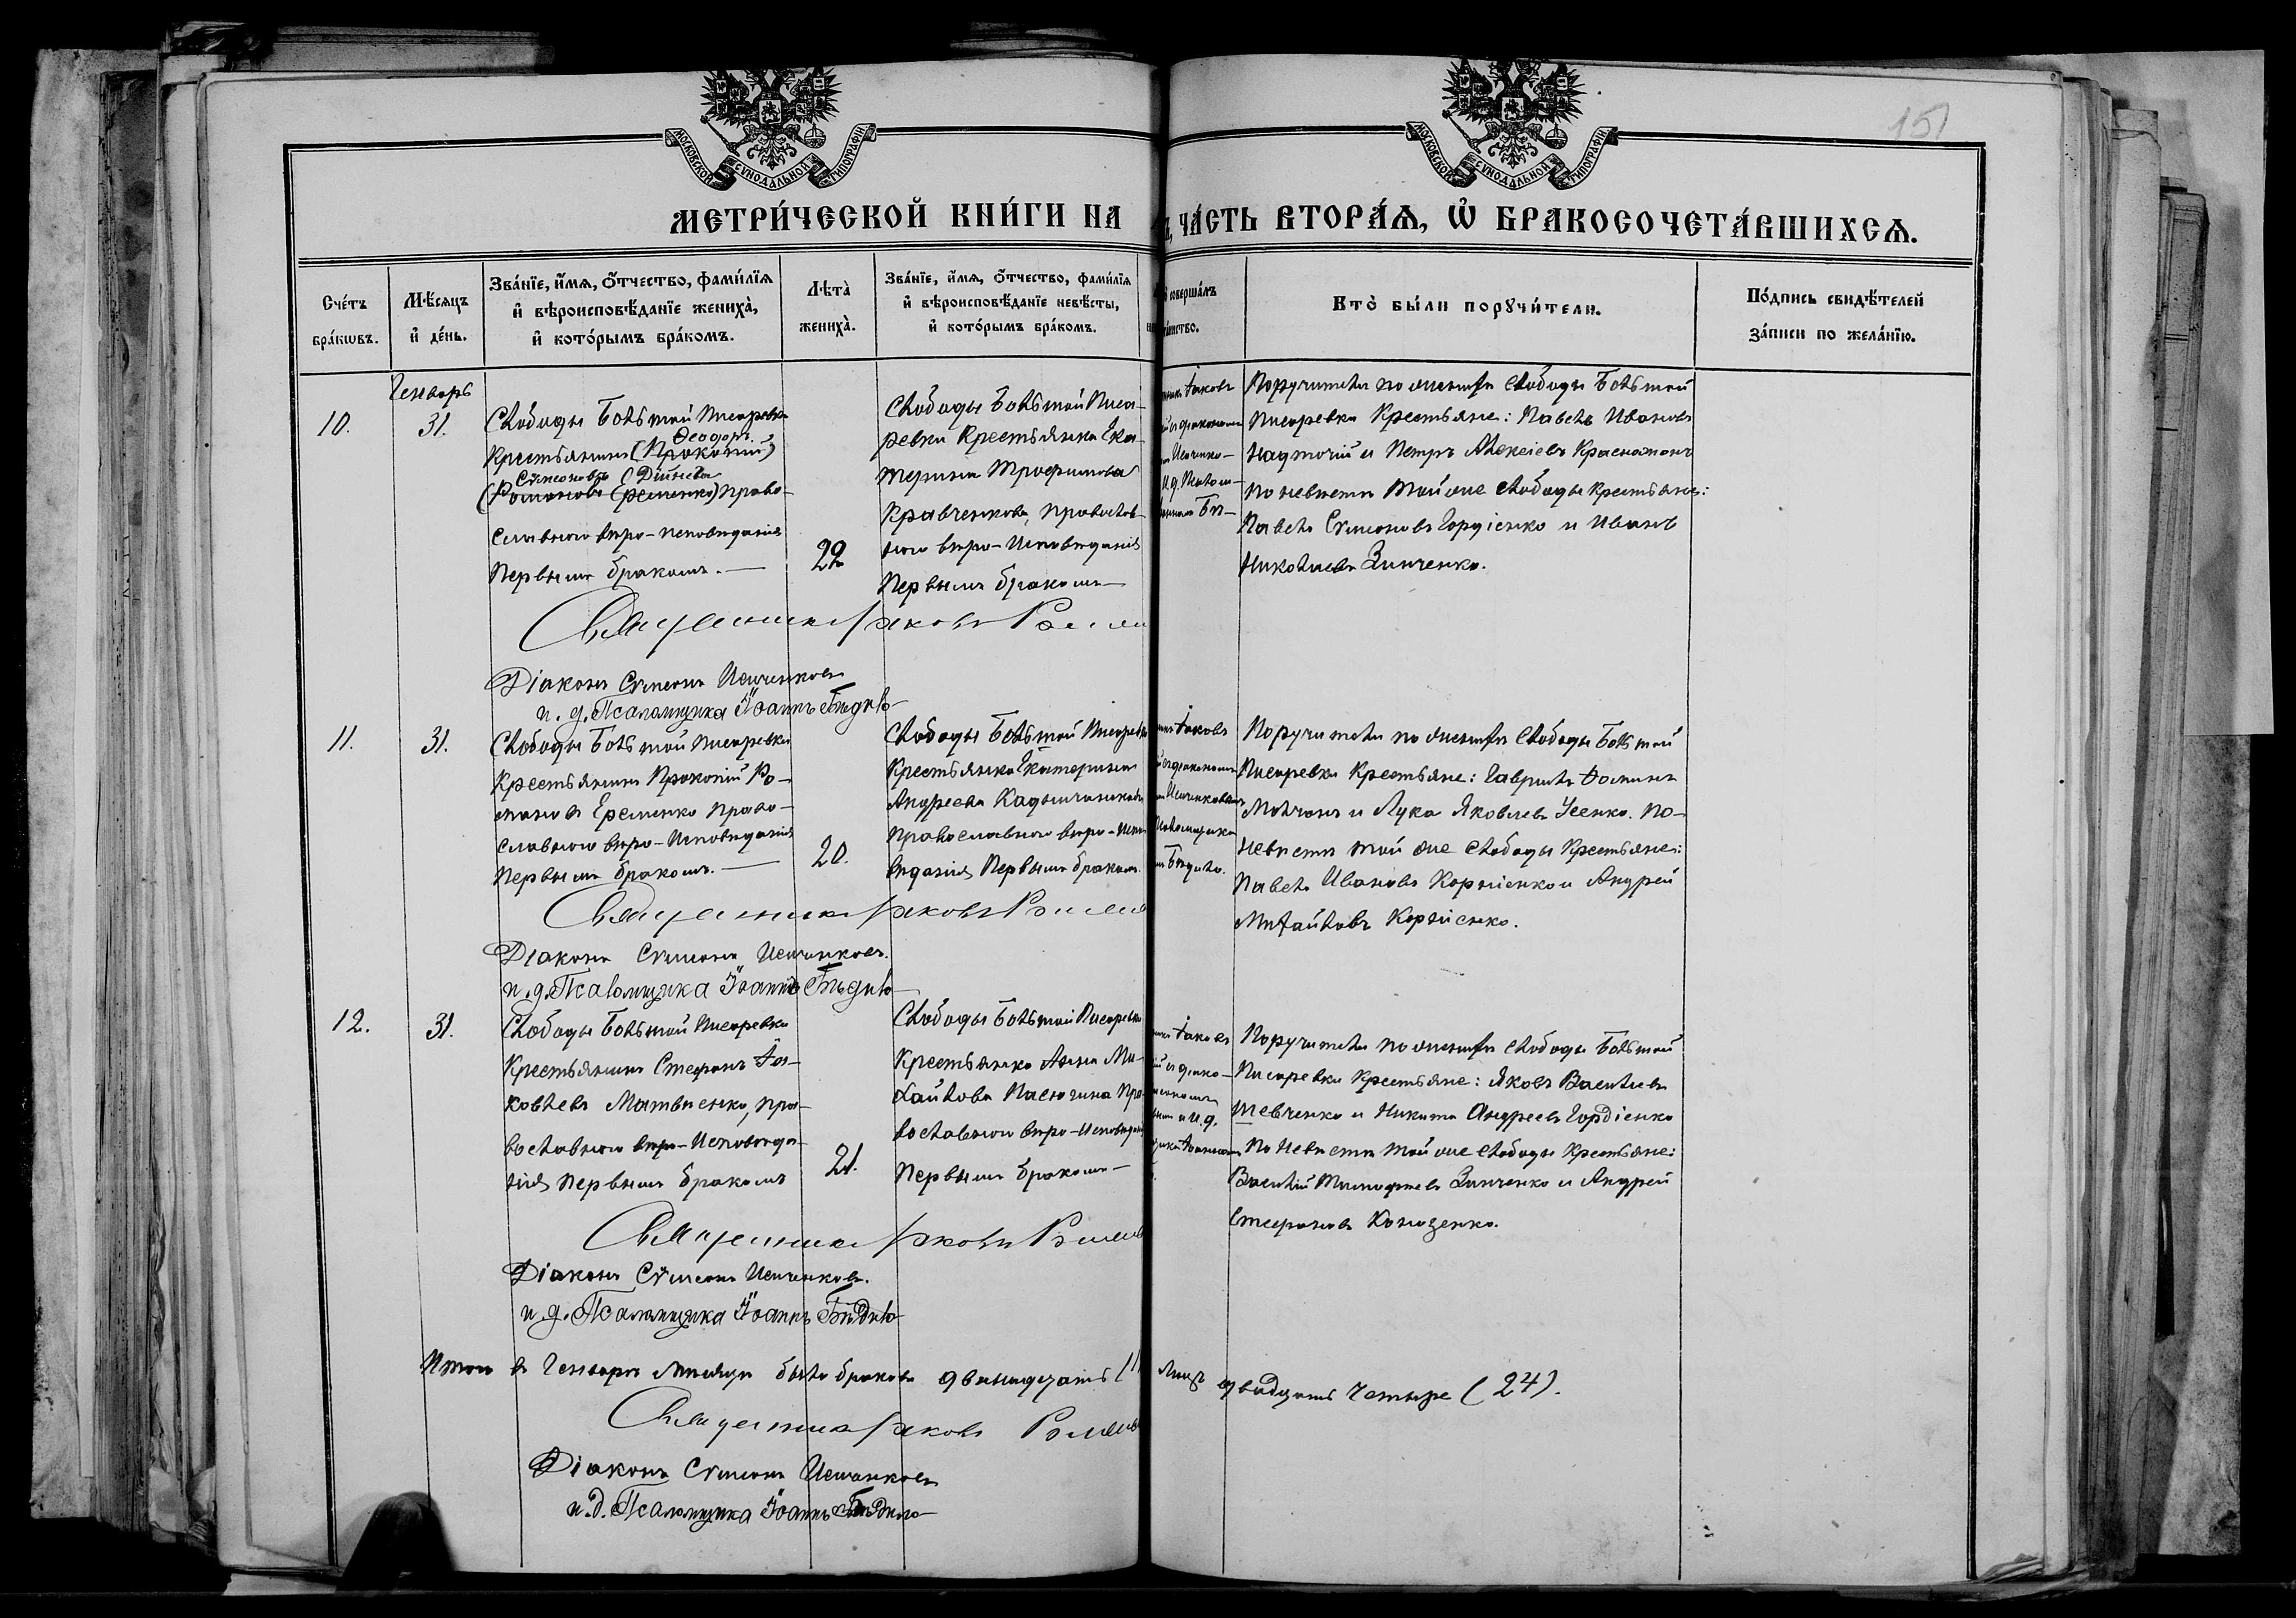 МОСКОВСКОЙ СУНОДАЛЬНОЙ ТИПОГРАФІИ
МОСКОВСКОЙ СУНОДАЛЬНОЙ ТИПОГРАФІИ
151
МЕТРИ́ЧЕСКОЙ КНИ́ГИ НА
ЧА́СТЬ ВТОРА́Ѧ, Ѡ҆ БРАКОСОЧЕТА́ВШИХСѦ.
Сче́тъ
бра́кωвъ.
Мѣ́сяцъ
и҆ де́нь.
Зва́нїе, и҆́мѧ, о҆́тчество, фами́лїѧ
и҆ вѣроисповѣ́данїе жениха̀,
и҆ кото́рымъ бра́комъ.
Лѣта̀
жениха̀.
Зва́нїе, и҆́мѧ, о҆́тчество, фами́лїѧ
и҆ вѣроисповѣ́данїе невѣ́сты,
и҆ кото́рымъ бра́комъ.
соверша́лъ
Кто̀ бы́ли порꙋчи́тели.
По́дпись свидѣ́телей
за́писи по жела́нїю.
Генварь
10.
31.
Слободы Большой Писаревки
Ѳеодоръ.
Крестьянинъ (Прокопій)
Сѵмеоновъ
(Романовъ Еременко) право-
славного вѣро-исповѣданія
Первымъ бракомъ.—
22
Слободы Большой Писа-
ревки Крестьянка Ека-
терина Трофимова
Кравченкова, православ-
ного вѣро-Исповѣданія
Первымъ бракомъ—
Іаковъ
Поручители по женихѣ Слободы Большой
Писаревки Крестьяне: Павелъ Ивановъ
Надточій и Петръ Алексіевъ
по невѣстѣ той же Слободы Крестьяне:
Павелъ Сѵмеоновъ Гордіенко и Иванъ
Николаевъ Зинченко.
Священникъ Іаковъ
Діаконъ Сѵмеонъ
и. д. Псаломщика Іоаннъ Бѣдило
11.
31.
Слободы Большой Писаревки
Крестьянинъ Прокопій Ро-
мановъ Еременко право-
славного вѣро-Исповѣданія
Первымъ бракомъ.—
20.
Слободы Большой Писаревки
Крестьянка Екатерина
Андреева
Православного вѣро-Испо
вѣданія Первымъ бракомъ.
Іаковъ
Поручители по женихѣ Слободы Большой
Писаревки Крестьяне: Гаврилъ Фоминъ
Молчанъ и Лука Яковлевъ Усенко. по-
невѣстѣ той же Слободы Крестьяне:
Павелъ Ивановъ Корніенко и Андрей
Михайловъ Корніенко.
Священникъ Іаковъ
Діаконъ Сѵмеонъ
и. д. Псаломщика Іоаннъ Бѣдило
12.
31.
Слободы Большой Писаревки
Крестьянинъ Стефанъ Іа-
ковлевъ Матвѣенко, пра-
вославного вѣро-Исповѣда-
нія Первымъ бракомъ
21.
Слободы Большой Писаревки
Крестьянка Анна Ми-
хайлова Пасючина пра-
вославного вѣро-Исповѣдан
Первымъ бракомъ—
Іаковъ
Поручители по женихѣ Слободы Большой
Писаревки Крестьяне: Яковъ Васильевъ
Шевченко и Никита Андреевъ Гордіенко
По невѣстѣ той же Слободы Крестьяне:
Василій Тимофѣевъ Зинченко и Андрей
Стефановъ
Священникъ Іаковъ
Діаконъ Сѵмеонъ
и. д. Псаломщика Іоаннъ Бѣдило
Итого въ Генварѣ мѣсяцѣ было браковъ двенадцать
лицъ двадцать четыре (24).
Священникъ Іаковъ
Діаконъ Сѵмеонъ
и. д. Псаломщика Іоаннъ Бѣдило